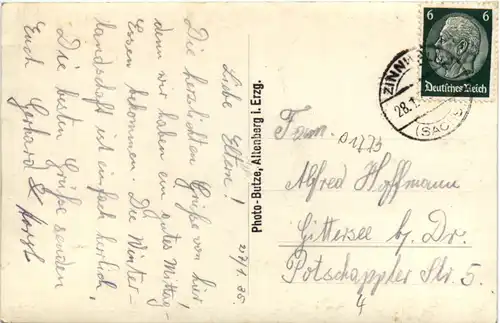 Liebe Eltern!
27/1. 35.
Die herzlichsten Grüße von hier
denn wir haben ein gutes Mittag-
Essen bekommen. Die Winter-
landschaft ist einfach herrlich,
Die besten Grüße senden
Euch Gerhard &
Photo-Butze, Altenberg i. Erzg.
6 6
Deutsches Reich
28.1
(SACHS
Fam.
D 1773
Alfred Hoffmann
Gittersee b/ Dr.
Potschappler Str. 5.
4